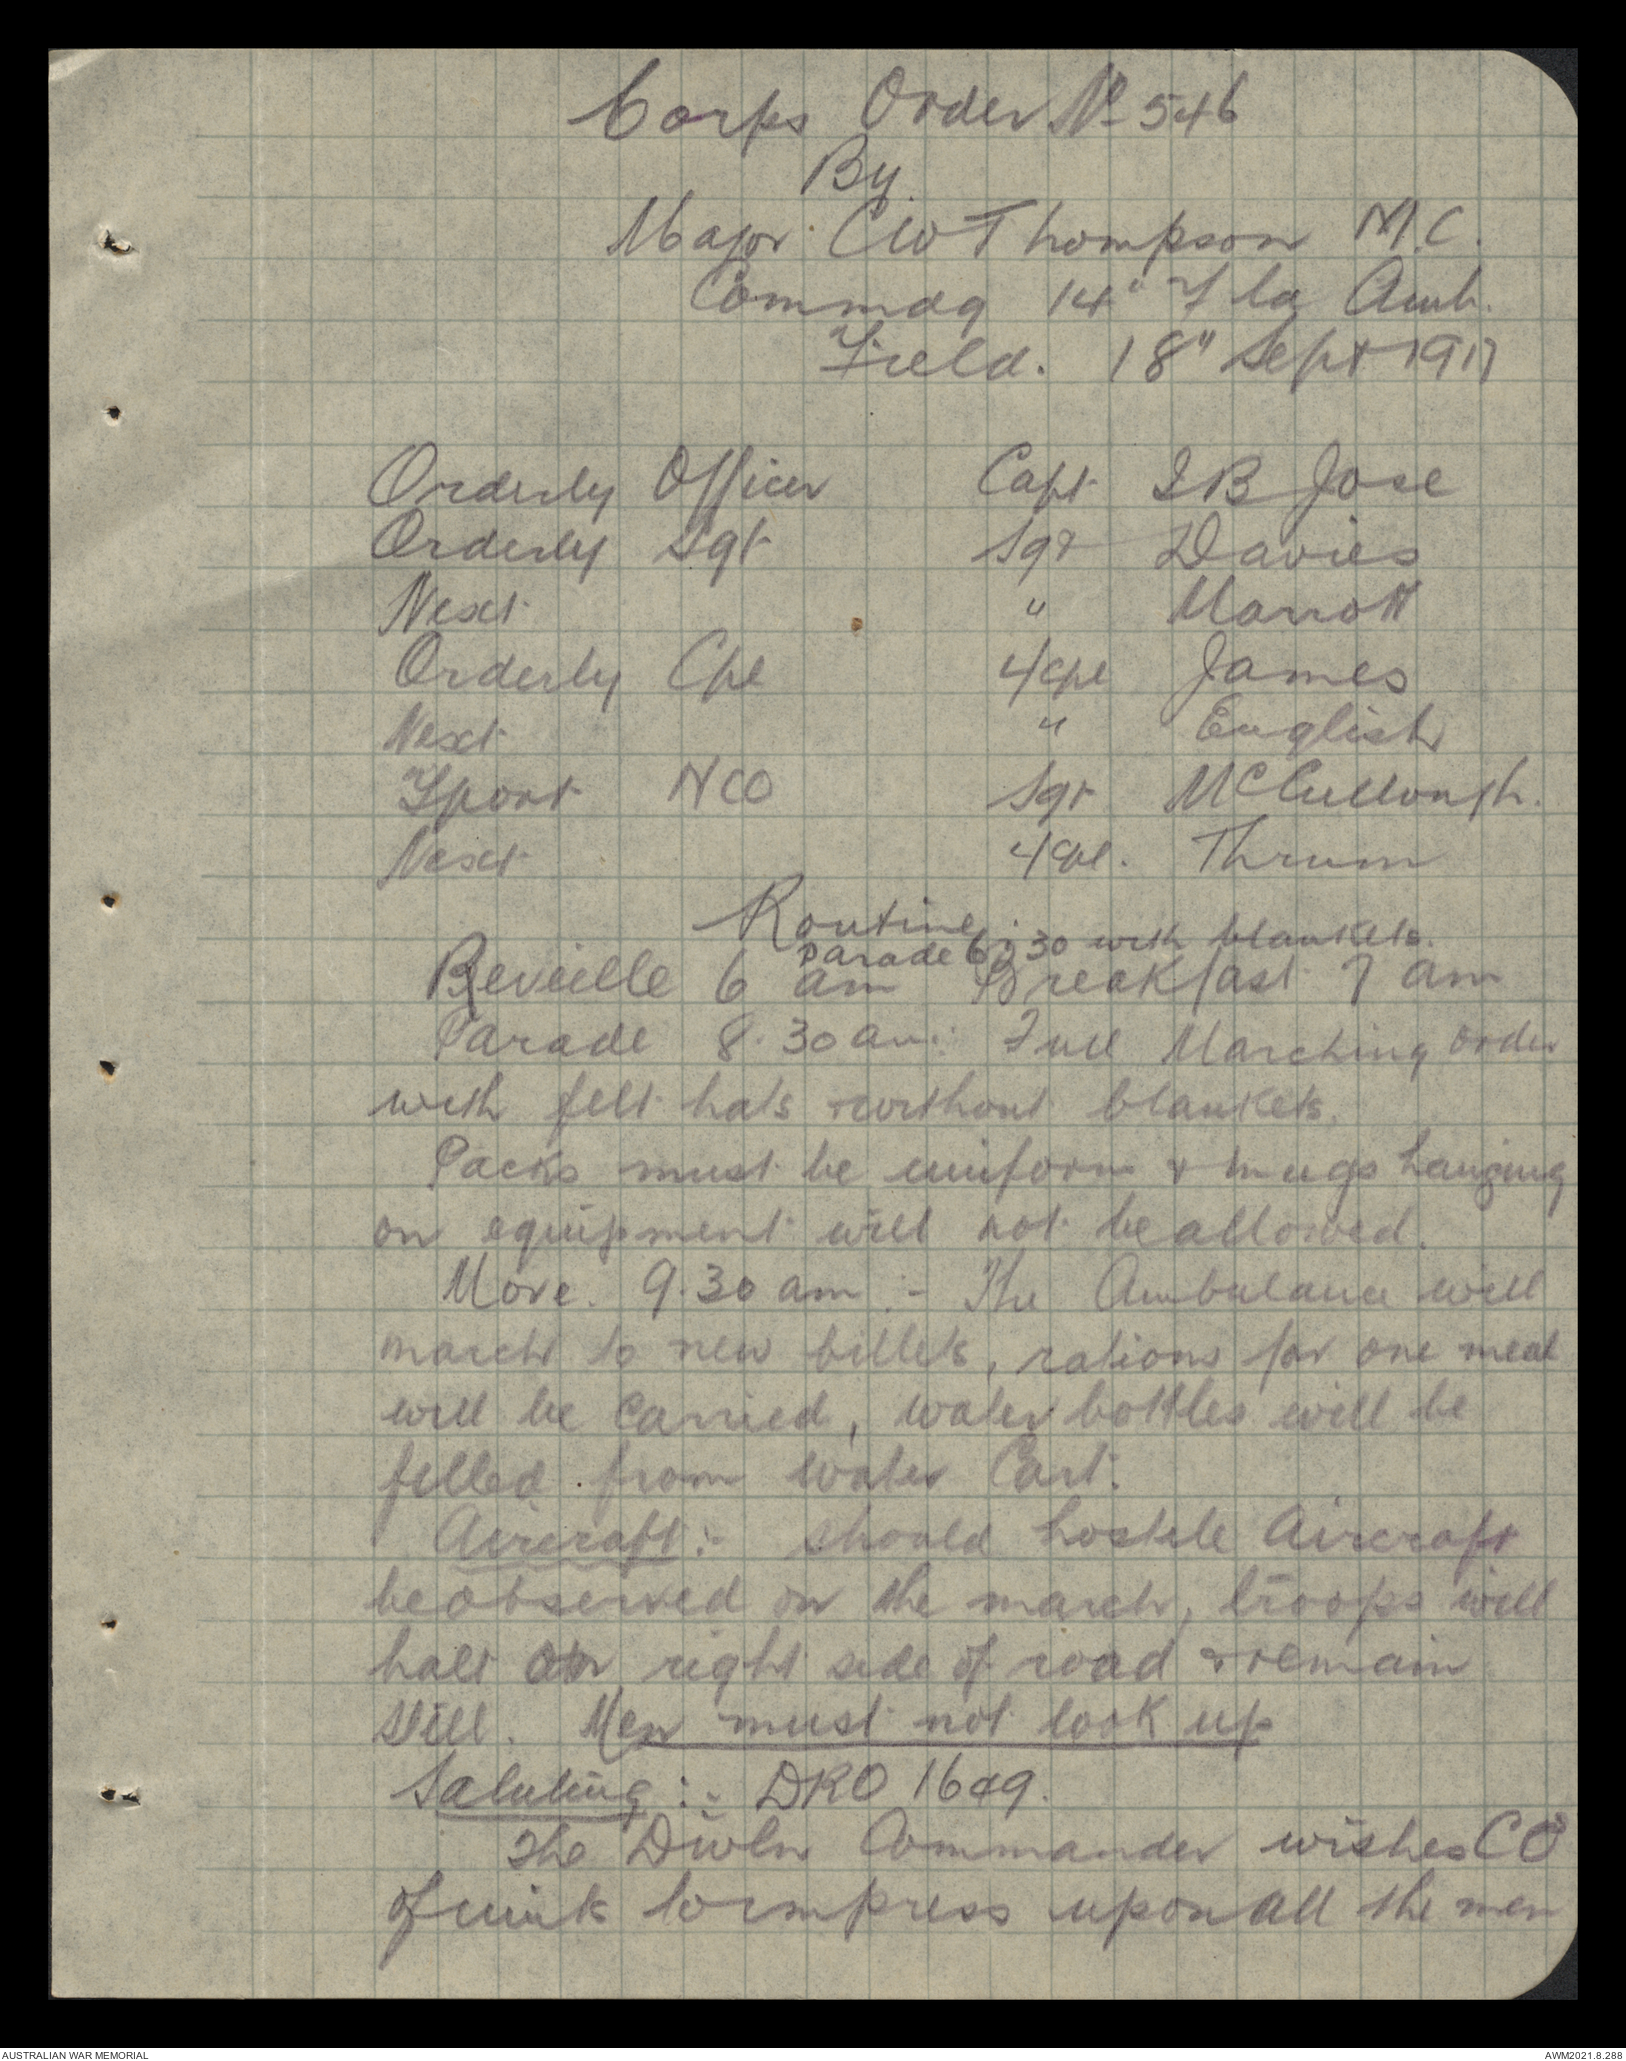 Corps Order No 546
By
Major CW Thompson M.C.
Commdg 14" Fld Amb.
Field. 18" Sept 1917
Orderly Officer Capt I B Jose
Orderly Sgt Sgt Davies
Next " Marrott
Orderly Cpl L/Cpl James
Next " English
Tport NCO Sgt McCullough.
Next L/Cpl. Thrum
Routine
Parade 6.30 with blankets.
Reveille 6 am Breakfast 7 am
Parade 8.30 am: Full Marching order
with felt hats & without blankets.
Packs must be uniform & mugs hanging
on equipment will not be allowed.
Move. 9.30 am :- The Ambulance will
march to new billets, rations for one meal
will be carried, water bottles will be
filled from water Cart.
Aircraft :- should hostile Aircraft
be observed on the march, troops will
halt on right side of road & remain
still. Men must not look up
Saluting :- DRO 1649.
The Divln Commander wishes COs
of units to impress upon all the men
AUSTRALIAN WAR MEMORIAL AWM2021.8.288